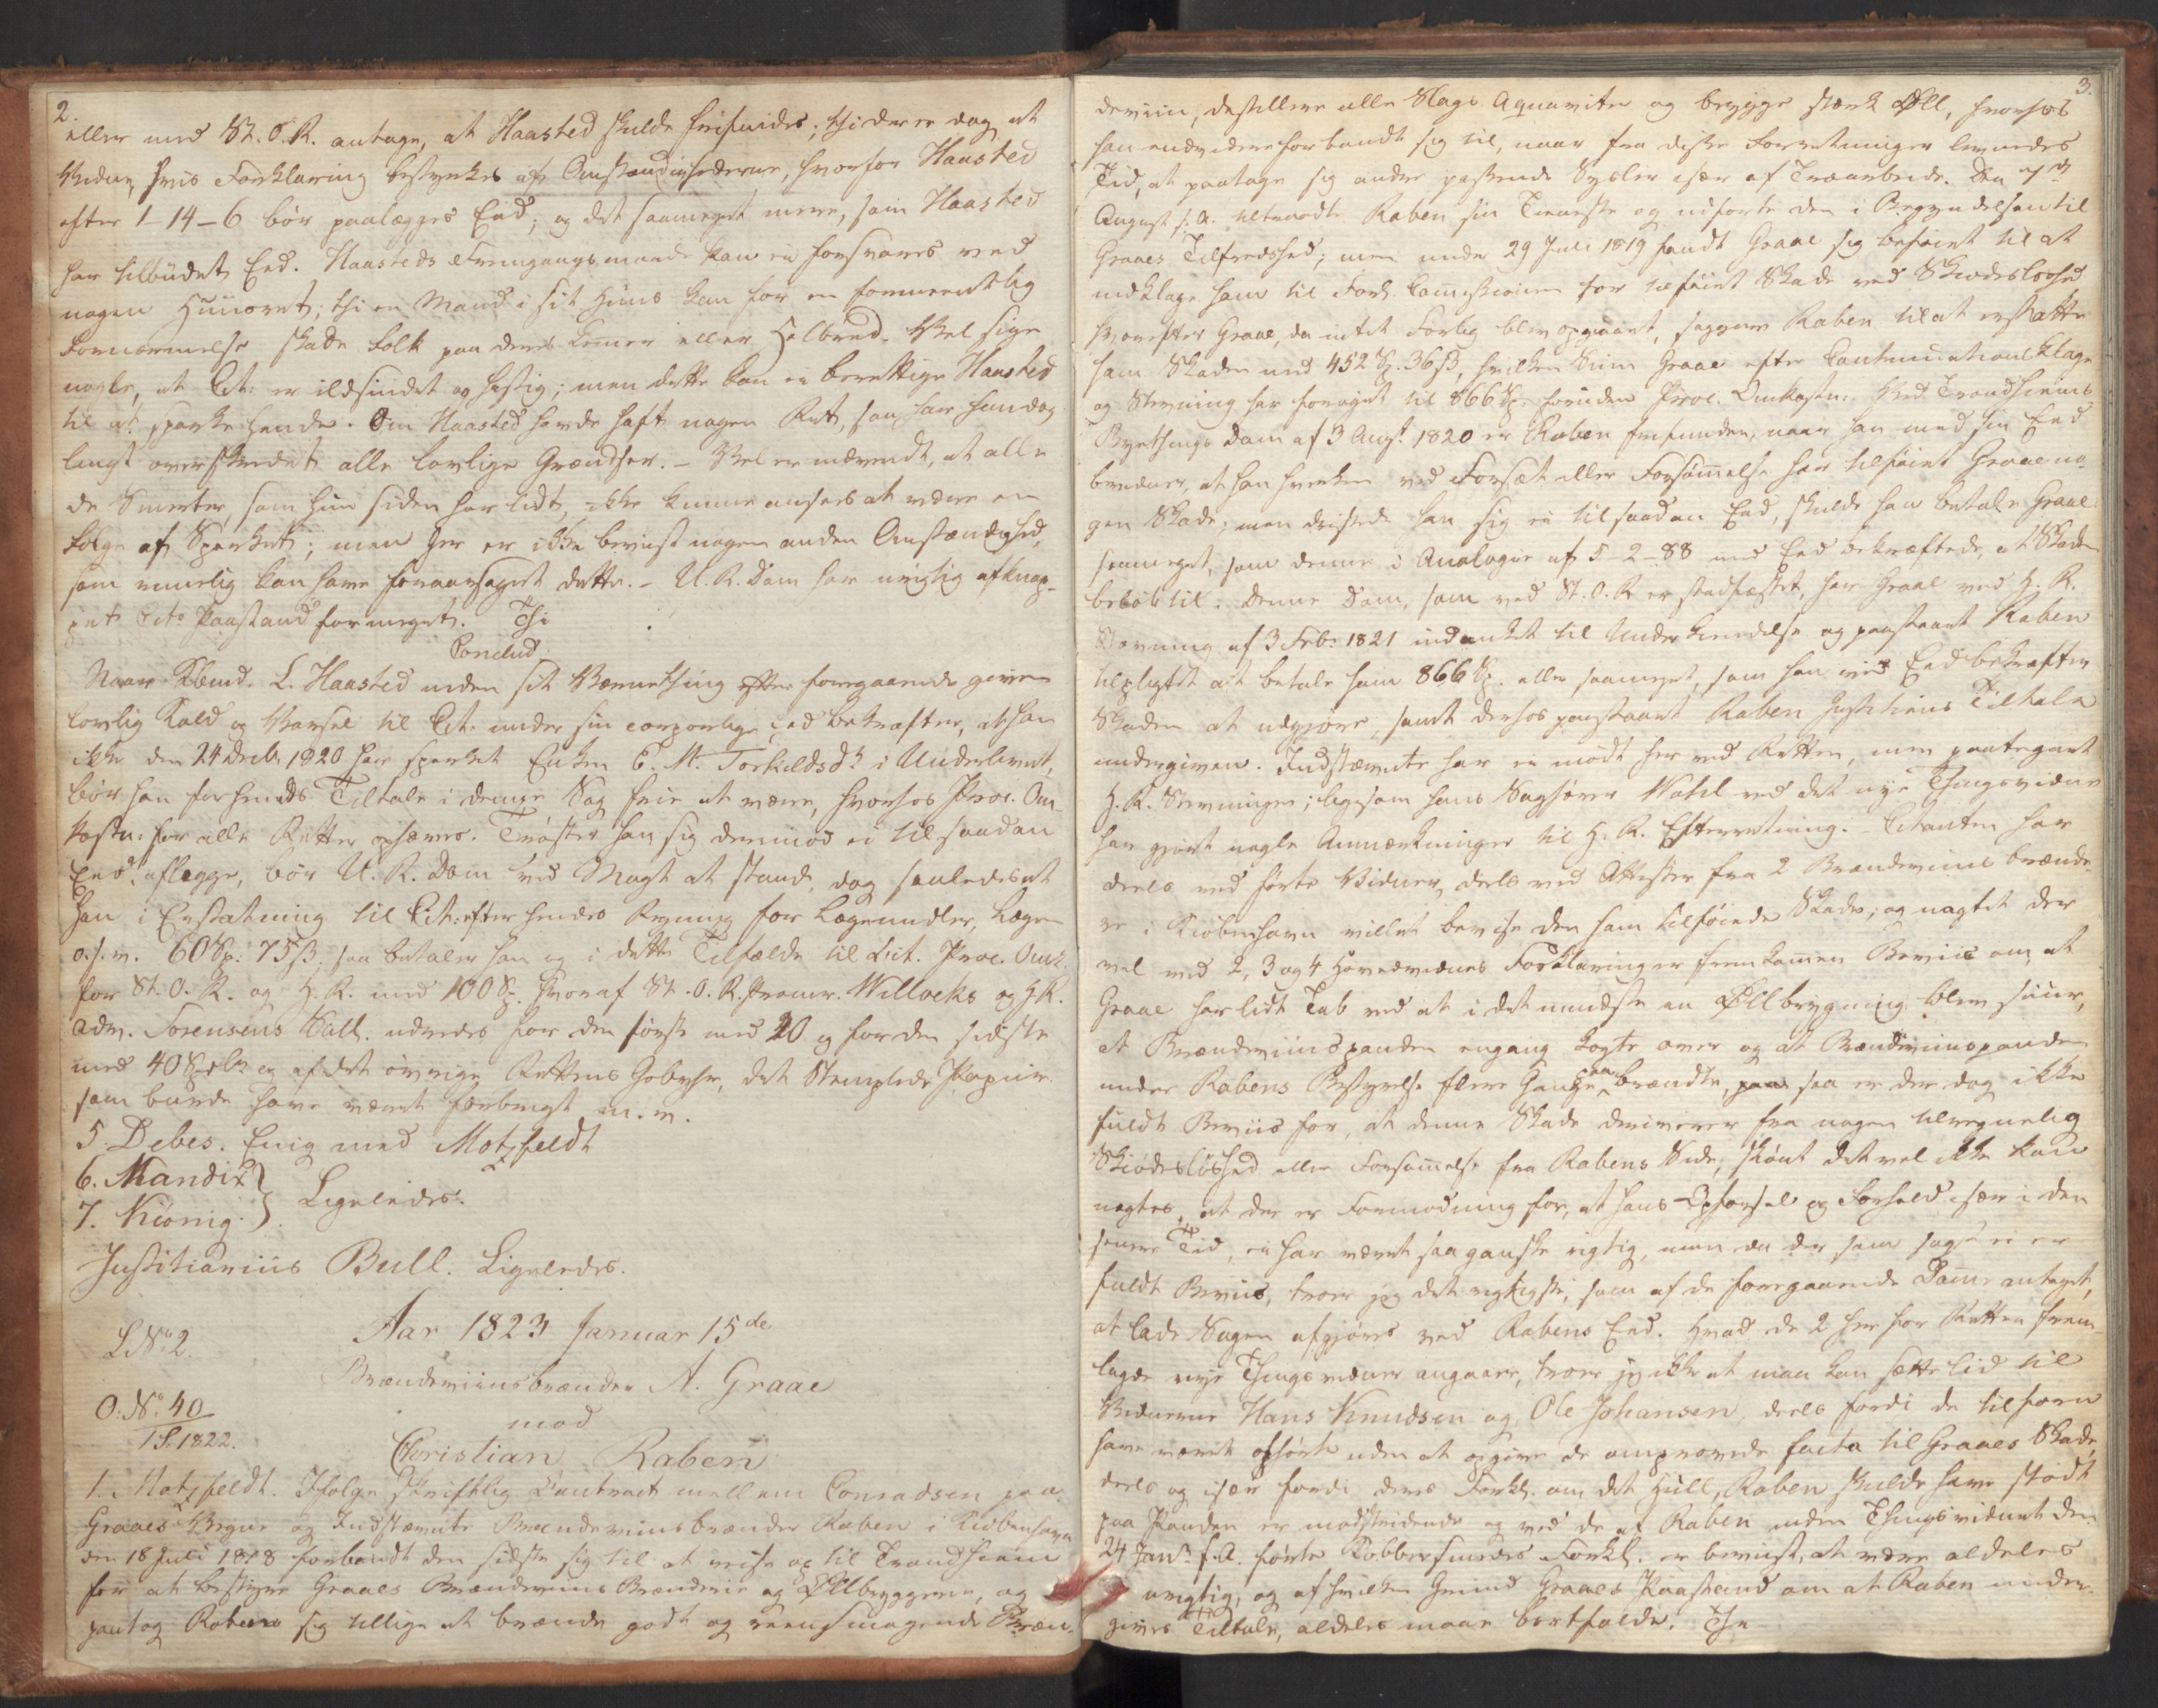 2.
eller med St. O. R. antage, at Haasted skulde frifindes; thi der er dog et
Vidne, hvis Forklaring bestyrkes af Omstændighederne, hvorfor Haasted
efter 1-14-6 bør paalægges Eed; og det saameget mere, som Haasted
har tilbudet Eed. Haasteds Fremgangsmaade kan ei forsvares ved
nogen Huusret; thi en Mand i sit Huus kan for en formeentlig
Fornærmelse skade Folk paa deres Lemer eller Helbred. Vel sige
nogle, at Cit: er ildsindet og hastig; men dette kan ei berettige Haasted
til at sparke hende. Om Haasted havde haft nogen Ret, saa har han dog
langt overskredet alle lovlige Grændser. – Vel er nævendt, at alle
de Smerter, som hun siden har lidt, ikke kunne ansees at være en
Følge af Sparket; men her er ikke beviist nogen anden Omstændighed,
som rimelig kan have foraarsaget dette. – U. R. Dom har urigtig afknap-
pet Cits Paastand for meget. Thi
Conclud.
Naar Kbmd. L. Haasted inden sit Værnething efter foregaaende given
lovlig Kald og Varsel til Cit: under sin corporlige Eed bekræfter, at han
ikke den 24 Decbr 1820 har sparket Enken E. M. Torkildsdr i Underlivet,
bør han for hendes Tiltale i denne Sag frie at være, hvorhos Proc. Om-
kostn: for alle Retter ophæves. Trøster han sig derimod ei til saadan
Eed aflægge, bør U. R. Dom ved Magt at stande, dog saaledes at
han i Erstatning til Cit: efter hendes Regning for Lægemidler, Læger
o. s. v. 60 Sp: 75 ß. saa betaler han og i dette Tilfælde til Cit. Proc. Omk.
for St. O. R. og H. R. med 100 Sp. hvoraf St. O. R. Procur. Willochs og H. R.
Adv. Sørensens Sall. udredes for den første med 20 og for den sidste
med 40 Spdlr og af det øvrige Rettens Gebyhr, det Stemplede Papiir
som burde have været forbrugt m. v.
5. Debes. Enig med Motzfeldt
6. Mandix }
7. Kiønig. } Ligeledes.
Justitiarius Bull. Ligeledes.
Aar 1823 Januar 15de
L No 2.
Brændeviinsbrænder A. Graae
O: No 40
1 S. 1822.
mod
Christian Raben
1. Motzfeldt. Ifølge skriftlig Contract mellem Conradsen paa
Graaes Vegne og Indstævnte Brændeviinsbrænder Raben i Kiøbenhavn
den 18 Juli 1818 forbandt den sidste sig til at reise op til Trondhiem
for at bestyre Graaes Brændeviins Brænderie og Ølbryggerie, og
paatog Raben sig tillige at brænde godt og reensmagende Bræn-
3.
deviin, destillere alle Slags Aquaviter og brygge stærk Øll, hvorhos
han endvidere forbandt sig til, naar fra disse Forretninger levnedes
Tid, at paatage sig andre passende Sysler især af Træarbeide. Den
August s. A. tiltraadte Raben sin Tieneste og udførte den i Begyndelsen til
Graaes Tilfredshed; men under 29 Juli 1819 fandt Graae sig beføiet til at
indklage ham til Forl. Comissionen for tilføiet Skade ved Skiødesløshed
hvorefter Graae, da intet Forlig blev opnaaet, sagsøgte Raben til at erstatte
ham Skaden med 452 Sp. 36 ß, hvilken Sum Graae efter Continuations Klage
og Stevning har forøget til 866 Sp. foruden Proc. Omkostn: Ved Trondhiems
Byethings Dom af 3 Augst 1820 er Raben frifunden, naar han med sin Eed
benægter, at han hverken ved Forsæt eller Forsømmelse har tilføiet Graae no-
gen Skade; men dristede han sig ei til saadan Eed, skulde han betale Graae
saameget, som denne i Analogie af 5-2-88 med Eed bekræftede, at Skaden
beløb til. Denne Dom, som ved St. O. R. er stadfæstet, har Graae ved H. R.
Stevning af 3 Febr 1821 indanket til Underkiendelse og paastaaet Raben
tilpligtet at betale ham 866 Sp. eller saameget, som han med Eed bekræfter
Skaden at udgiøre, samt derhos paastaaet Raben Justitiens Tiltale
undergiven. Indstævnte har ei mødt her ved Retten, men paategnet
H. R. Stevningen; ligesom hans Sagfører Wahl ved det nye Thingsvidne
har giort nogle Anmærkninger til H. R. Efterretning. – Citanten har
deels ved førte Vidner, deels ved Attester fra 2 Brændeviins brænde-
re i Kiøbenhavn villet bevise den ham tilføiede Skade; og uagtet der
vel ved 2, 3 og 4 Hovedvidnes Forklaring er fremkommen Beviis om, at
Graae har lidt Tab ved at i det mindste en Øllbrygning blev suur,
at Brændeviinspanden engang kogte over og at Brændeviinspanden
under Rabens Bestyrelse flere Gange paabrændte, saa er der dog ikke
fuldt Beviis for, at denne Skade deriverer fra nogen tilregnelig
Skiødesløshed eller Forsømmelse fra Rabens Side, skiønt det vel ikke kan
nægtes, at der er Formodning for, at hans Opførsel og Forhold især i den
senere Tid, ei har været saa ganske rigtig, men da der som sagt ei er
fuldt Beviis, troer jeg det rigtigste, som af de foregaaende Domme antaget,
at lade Sagen afgiøres ved Rabens Eed. Hvad de 2 her for Retten frem-
lagde nye Thingsvidner angaaer, troer jeg ikke at man kan sætte Lid til
Vidnerne Hans Knudsen og Ole Johansen, deels fordi de tilforn
have været afhørte uden at opgive de omprovede facta til Graaes Skade,
deels og især fordi deres Forkl. om det Hull, Raben skulde have stødt
paa Panden er modstridende og ved de af Raben under Thingsvidnet den
24 Janr f. A. førte Kobbersmedes Forkl. er beviist, at være aldeles
urigtig, og af hvilken Grund Graaes Paastand om at Raben under-
gives Tiltale, aldeles maae bortfalde. Thi